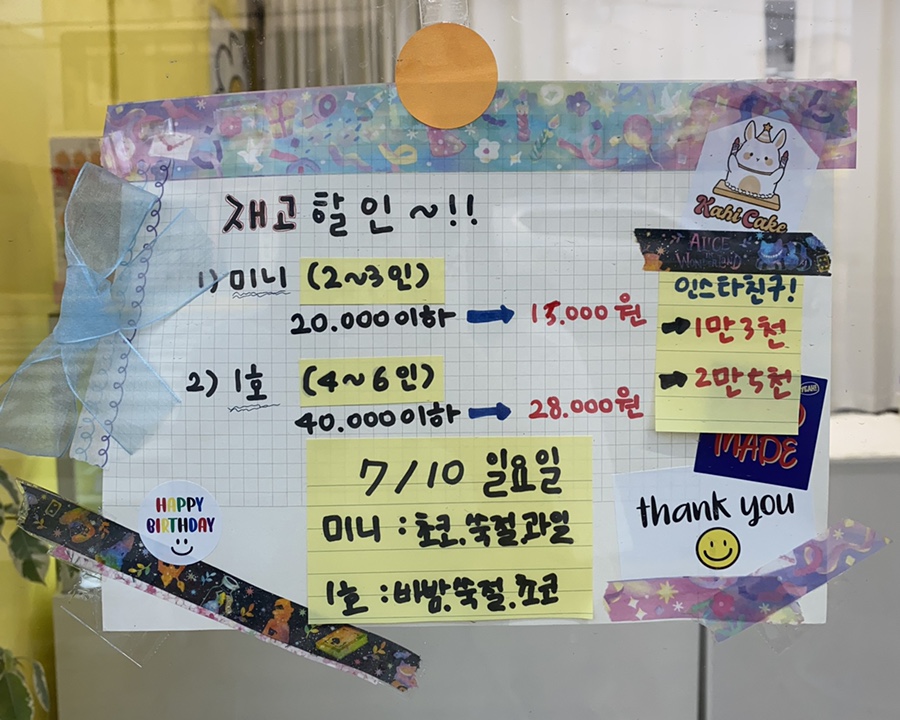 재고 할인 ~!!
1) 미니 (2~3인)
20.000이하 → 15.000원
2) 1호 (4~6인)
40.000이하 → 28.000원
Kahi Cake
ALICE
IN
WONDERLAND
인스타친구!
→ 1만3천
→ 2만5천
7/10 일요일
미니 : 초코.쑥절.과일
1호 : 바밤.쑥절.쵸코
HAPPY
BIRTHDAY
MADE
thank you